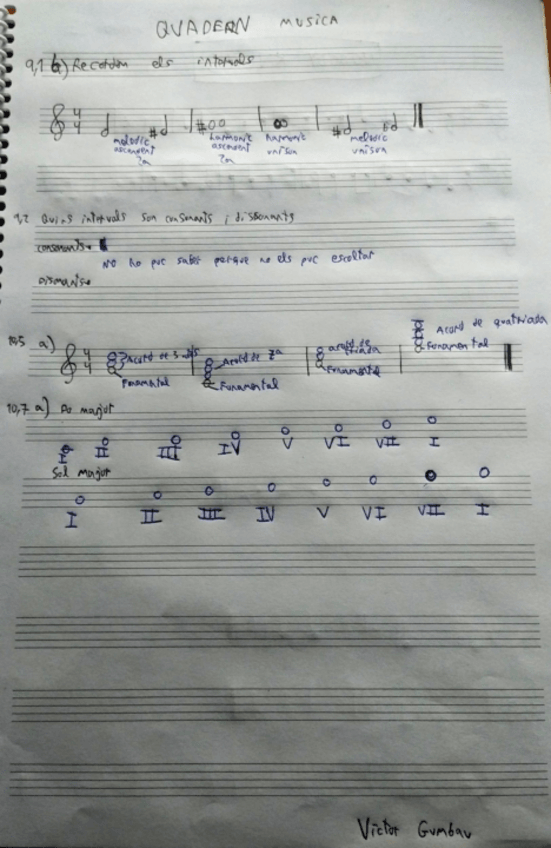 QUADERN MUSICA
9,1 b) Recordem els intervals
melodic ascendent 2a
harmonic ascendent 2a
harmonic unison
melodic unison
9,2 Quins intervals son consonants i dissonants
consonants→
No ho puc saber perque no els puc escoltar
Disonants→
10,5 a)
Acord de
Fonamental
Acord de 7a
Fonamental
acord de triada
Fonamental
Acord de quatriada
Fonamental
10,7 a) Do major
I II III IV V VI VII I
Sol major
I II III IV V VI VII I
Victor Gumbau